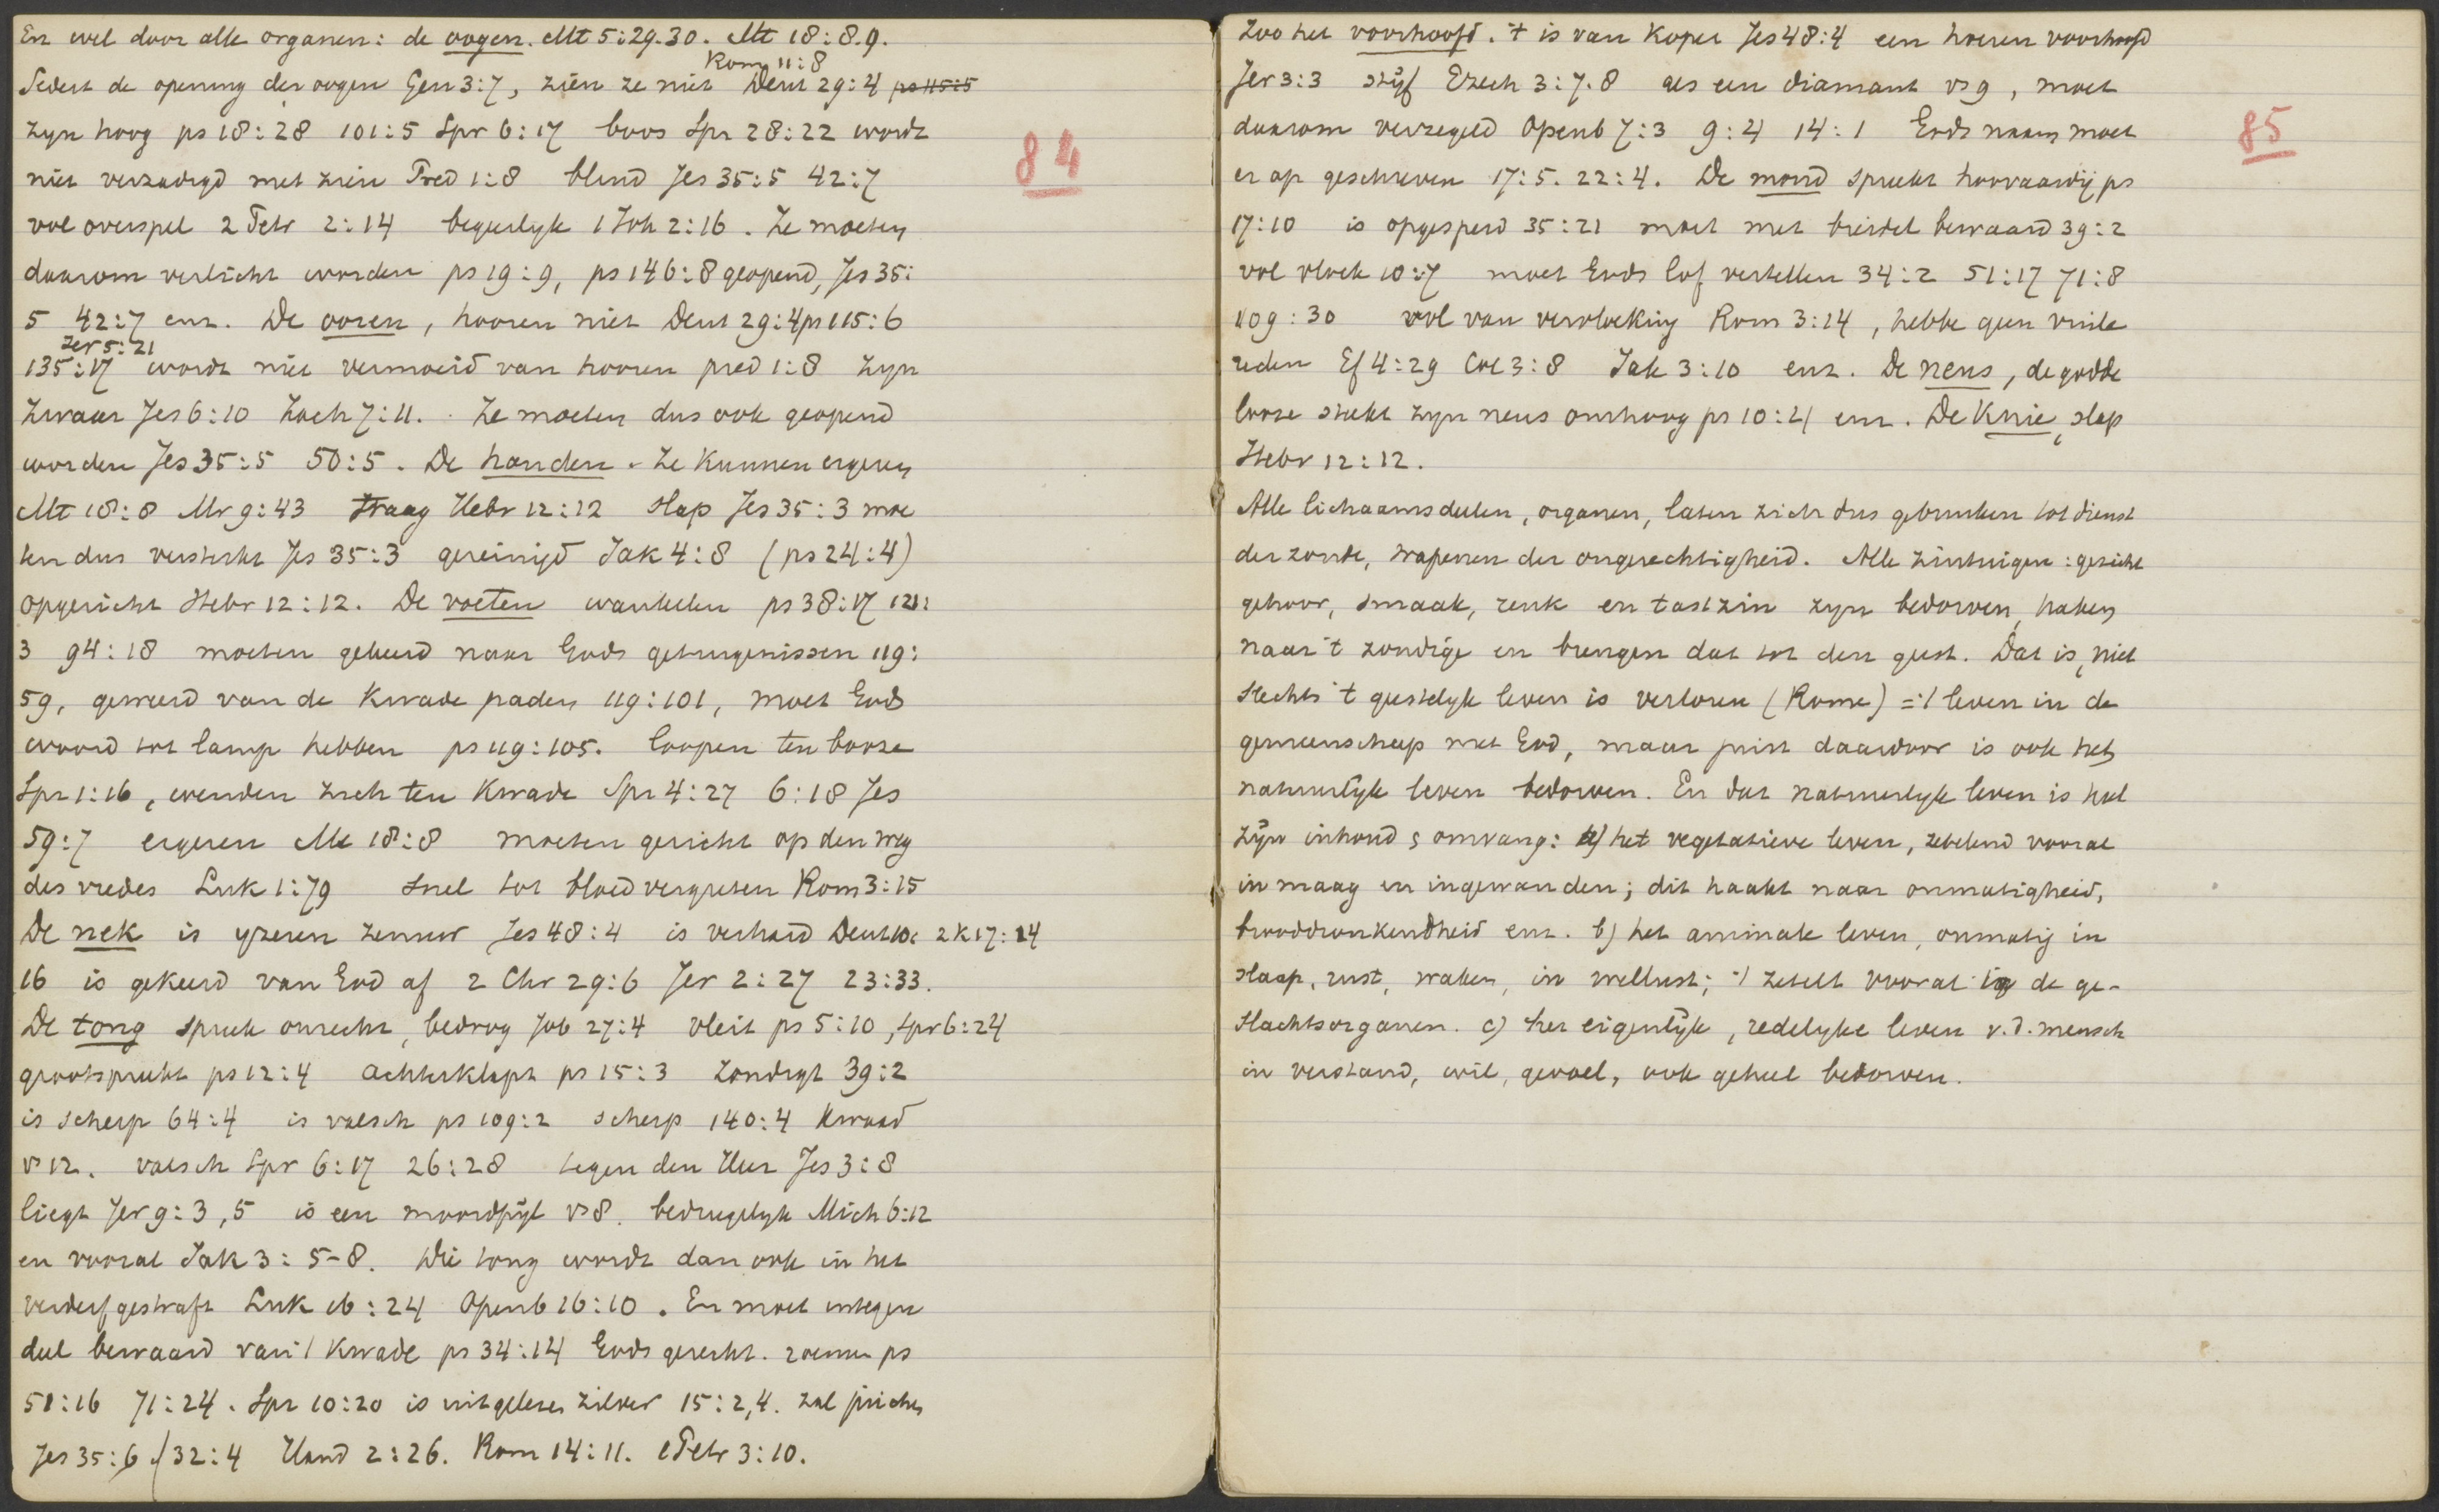 En wel door alle organen: de oogen. Mt 5:29.30. Mt 18:8.9.
Rom 11:8
Sedert de opening der oogen Gen 3:7, zien ze niet Deut 29:4 ps 115:5
zyn hoog ps 18:28 101:5 Spr 6:17 boos Spr 28:22 wordt
niet verzadigd met zien Pred 1:8 blind Jes 35:5 42:7
vol overspel 2 Petr 2:14 begeerlyk 1 Joh 2:16. Ze moeten
daarom verlicht worden ps 19:9, ps 146:8 geopend, Jes 35:
5 42:7 enz. De ooren, hooren niet Deut 29:4 ps 115:6
Jer 5:21
135:17 wordt niet vermoeid van hooren pred 1:8 zyn
zwaar Jes 6:10 Zach 7:11. Ze moeten dus ook geopend
worden Jes 35:5 50:5. De handen. Ze kunnen ergeren
Mt 18:8 Mr 9:43 traag Hebr 12:12 slap Jes 35:3 moe
ten dus versterkt Jes 35:3 gereinigd Jak 4:8 (ps 24:4)
opgericht Hebr 12:12. De voeten wankelen ps 38:17 121:
3 94:18 moeten gekeerd naar Gods getuigenissen 119:
59, geweerd van de kwade paden 119:101, moet Gods
woord tot lamp hebben ps 119:105. loopen ten booze
Spr 1:16, wenden zich ten kwade Spr 4:27 6:18 Jes
59:7 ergeren Mt 18:8 moeten gericht op den weg
des vredes Luk 1:79 snel tot bloedvergieten Rom 3:15
De nek is yzeren zenuw Jes 48:4 is verhard Deut 10: 2 K 17:14
16 is gekeerd van God af 2 Chr 29:6 Jer 2:27 23:33.
De tong spreek onrecht, bedrog Job 27:4 vleit ps 5:10, Spr 6:24
grootspreekt ps 12:4 achterklapt ps 15:3 zondigt 39:2
is scherp 64:4 is valsch ps 109:2 scherp 140:4 kwaad
vs 12. valsch Spr 6:17 26:28 tegen den Heer Jes 3:8
liegt Jer 9:3,5 is een moordpijl vs 8. bedriegelyk Mich 6:12
en vooral Jak 3:5-8. Die tong wordt dan ook in het
verderf gestraft Luk 16:24 Openb 16:10. En moet integen
deel bewaard van 't kwade ps 34:14 Gods gerecht. roemen ps
51:16 71:24. Spr 10:20 is uitgelezen zilver 15:2,4. zal juichen
Jes 35:6 / 32:4 Hand 2:26. Rom 14:11. 1 Petr 3:10.
84
Zoo het voorhoofd. 't is van koper Jes 48:4 een hoeren voorhoofd
Jer 3:3 stijf Ezech 3:7.8 als een diamant vs 9, moet
daarom verzegeld Openb 7:3 9:4 14:1 Gods naam moet
er op geschreven 17:5. 22:4. De mond spreekt hoovaardij ps
17:10 is opgesperd 35:21 moet met breidel bewaard 39:2
vol vloek 10:7 moet Gods lof vertellen 34:2 51:17 71:8
109:30 vol van vervloeking Rom 3:14, hebbe geen vuile
reden Ef 4:29 Col 3:8 Jak 3:10 enz. De neus, de godde
looze steekt zyn neus omhoog ps 10:4 enz. De Knie, slap
Hebr 12:12.
Alle lichaamsdeelen, organen, laten zich dus gebruiken tot dienst
der zonde, wapenen der ongerechtigheid. Alle zintuigen: gezicht
gehoor, smaak, reuk en tastzin zyn bedorven, haken
naar 't zondige en brengen dat tot den geest. Dat is, niet
slechts 't geestelyk leven is verloren (Rome) = 't leven in de
gemeenschap met God, maar juist daardoor is ook het
natuurlyk leven bedorven. En dat natuurlyk leven is heel
zijn inhoud & omvang: a) het vegetatieve leven, zetelend vooral
in maag en ingewanden; dit haakt naar onmatigheid,
brooddronkendheid enz. b) het animale leven, onmatig in
slaap, rust, waken, in wellust; 't zetelt vooral in de ge-
slachtsorganen. c) het eigenlijke, redelyke leven v.d. mensch
in verstand, wil, gevoel, ook geheel bedorven.
85